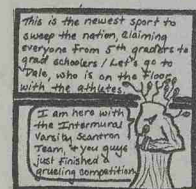 This is the newest sport to
sweep the nation, claiming
everyone from 5th graders to
grad schoolers! Let's go to
Dale, who is on the floor
with the athletes.
I am here with
the Intermural
Varsity Scantron
Team, & you guys
just finished a
grueling competition